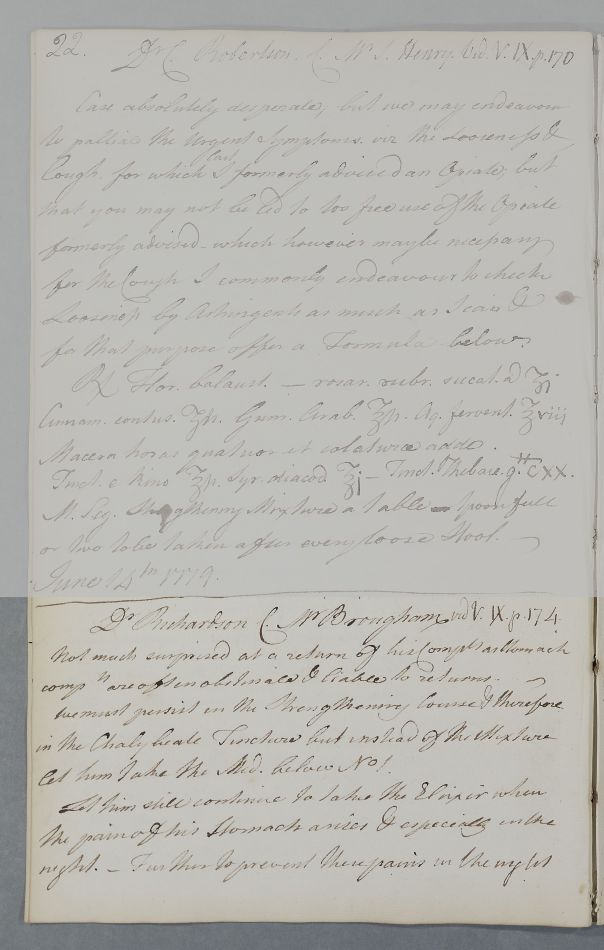 22. Dr C. Robertson. C. Mr J. Henry. Vid. V. IX. p. 170
Case absolutely desperate; but we may endeavour
to palliate the Urgent Symptoms. viz the Looseness &
Cough. for which last I formerly advised an Opiate, but
that you may not be led to too free use of the Opiate
formerly advised - which however may be necessary
for the Cough I commonly endeavour to check
Looseness by Astringents as much as I can &
for that purpose offer a Formula below.
℞ Flor. balaust. — rosar. rubr. siccat. a ʒi
Cinnam. contus. ʒſs. Gum. Arab. ʒſs. Aq. fervent. ℥viij
Macera horas quatuor et colaturae adde.
Tinct. e Kino ℥ſs. Syr. diacod ℥j — Tinct. Thebaic. gtt CXX.
M. Sig. Strengthening Mixture a table spoonfull
or two to be taken after every loose Stool.
June 14th 1779.
Dr Richardson C. Mr Brougham vid V. IX. p. 174
Not much surprised at a return of his compts as Stomach
compts are often obstinate & liable to returns.
We must persist in the Strengthening Course & therefore
in the Chalybeate Tincture but instead of the Mixture
let him take the Med. below No 1.
Let him still continue to take the Elixir when
the pain of his Stomach arises & especially in the
night. — Further to prevent these pains in the night